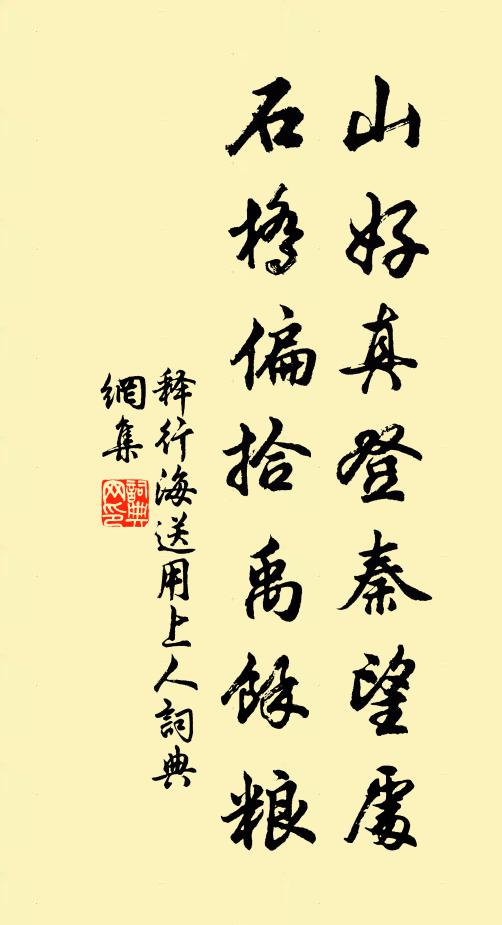 山好真登秦望處
石橋偏拾禹餘粮
释行海送用上人詞典
網集
詞典網印